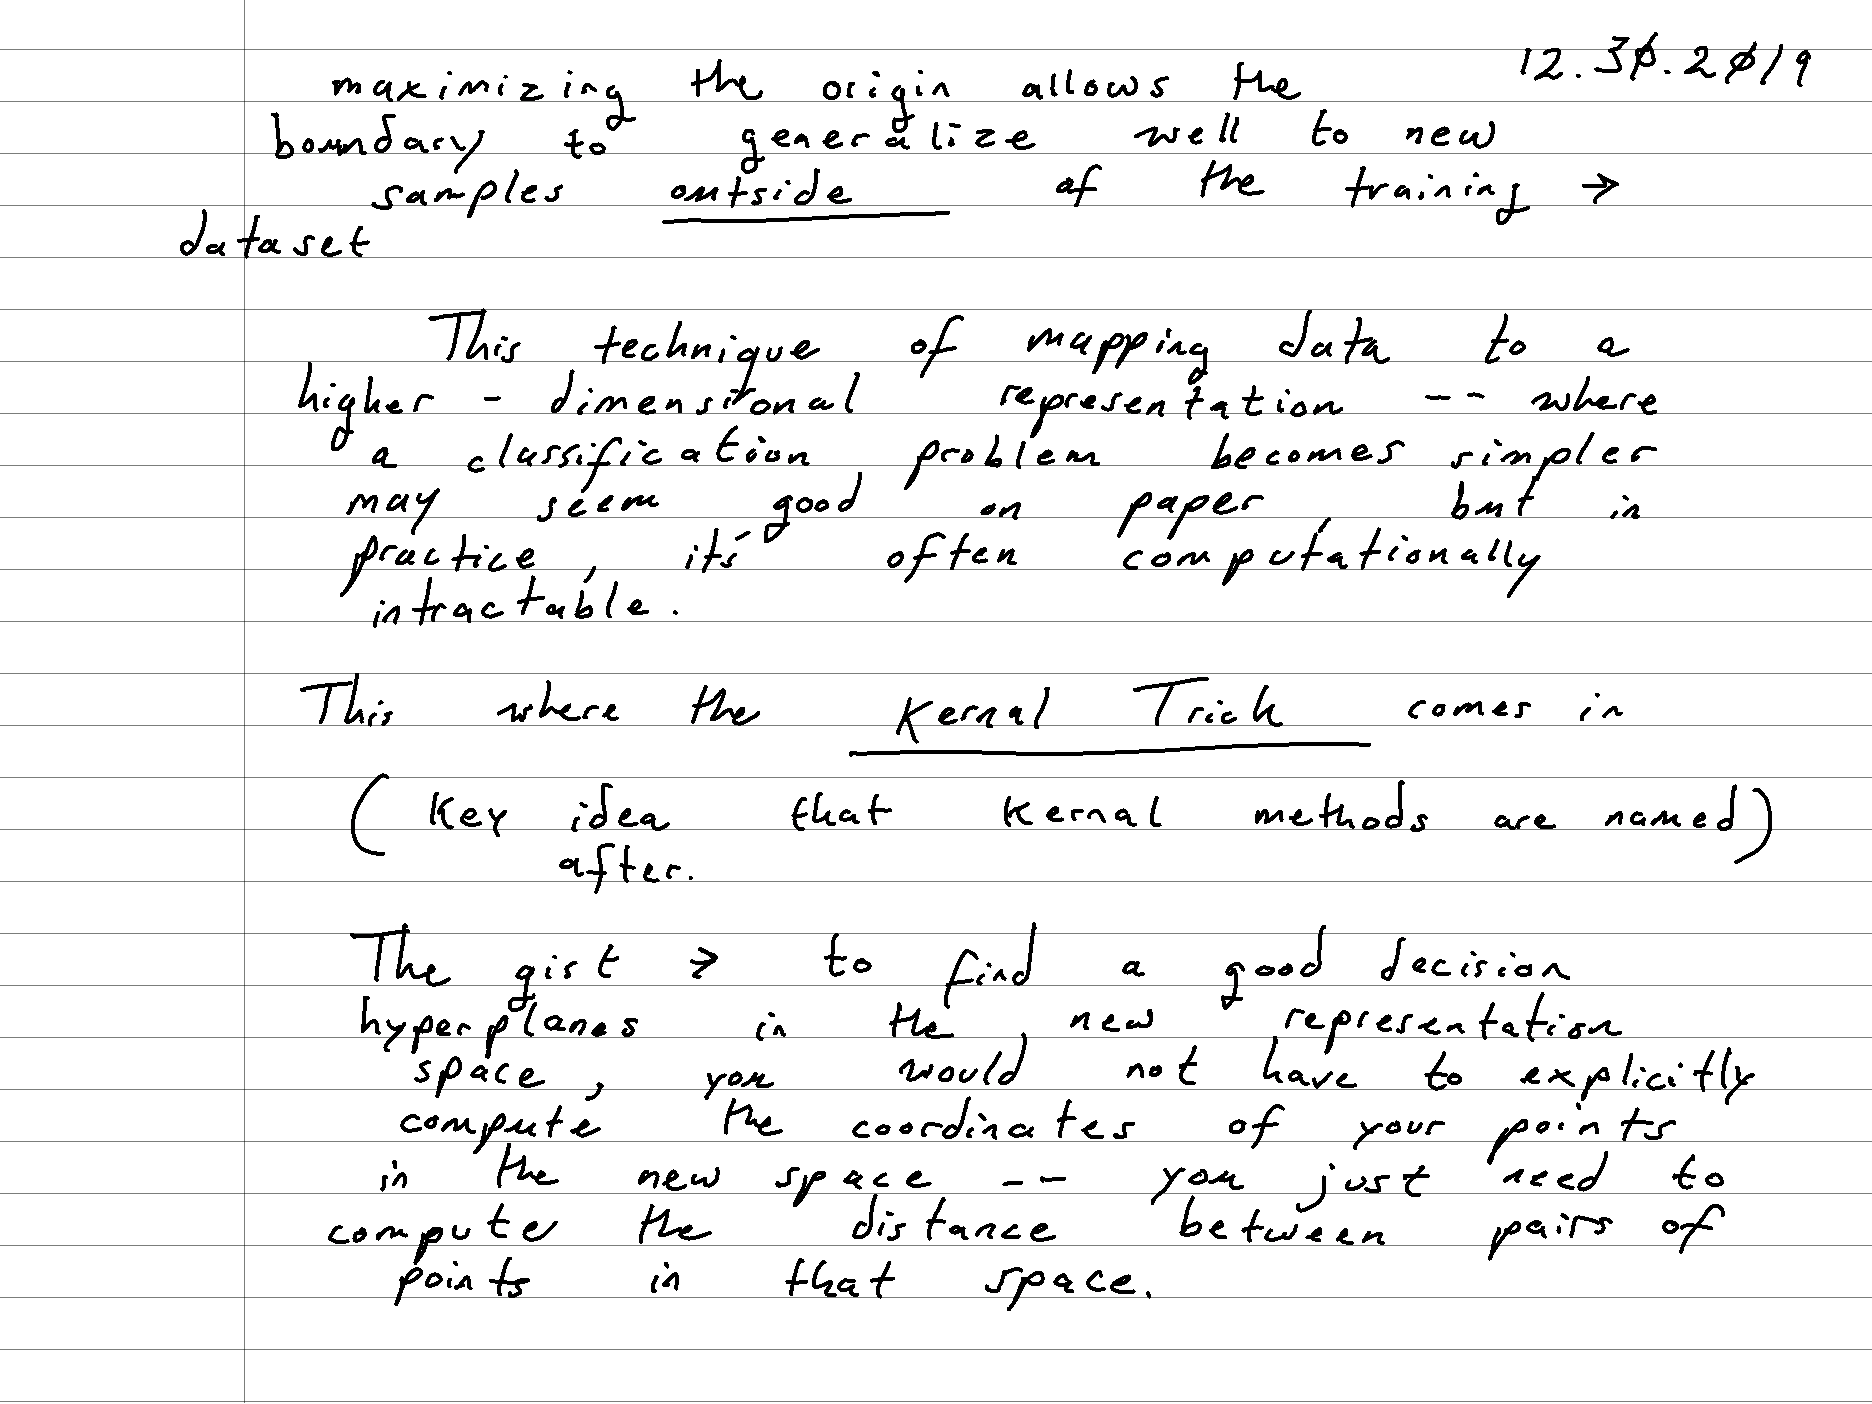 12.30.2019
maximizing the origin allows the
boundary to generalize well to new
samples outside of the training →
dataset
This technique of mapping data to a
higher - dimensional representation -- where
a classification problem becomes simpler
may seem good on paper, but in
practice, it's often computationally
intractable.
This where the Kernal Trick comes in
(Key idea that Kernal methods are named)
after.
The gist → to find a good decision
hyperplanes in the new representation
space, you would not have to explicitly
compute the coordinates of your points
in the new space -- you just need to
compute the distance between pairs of
points in that space.